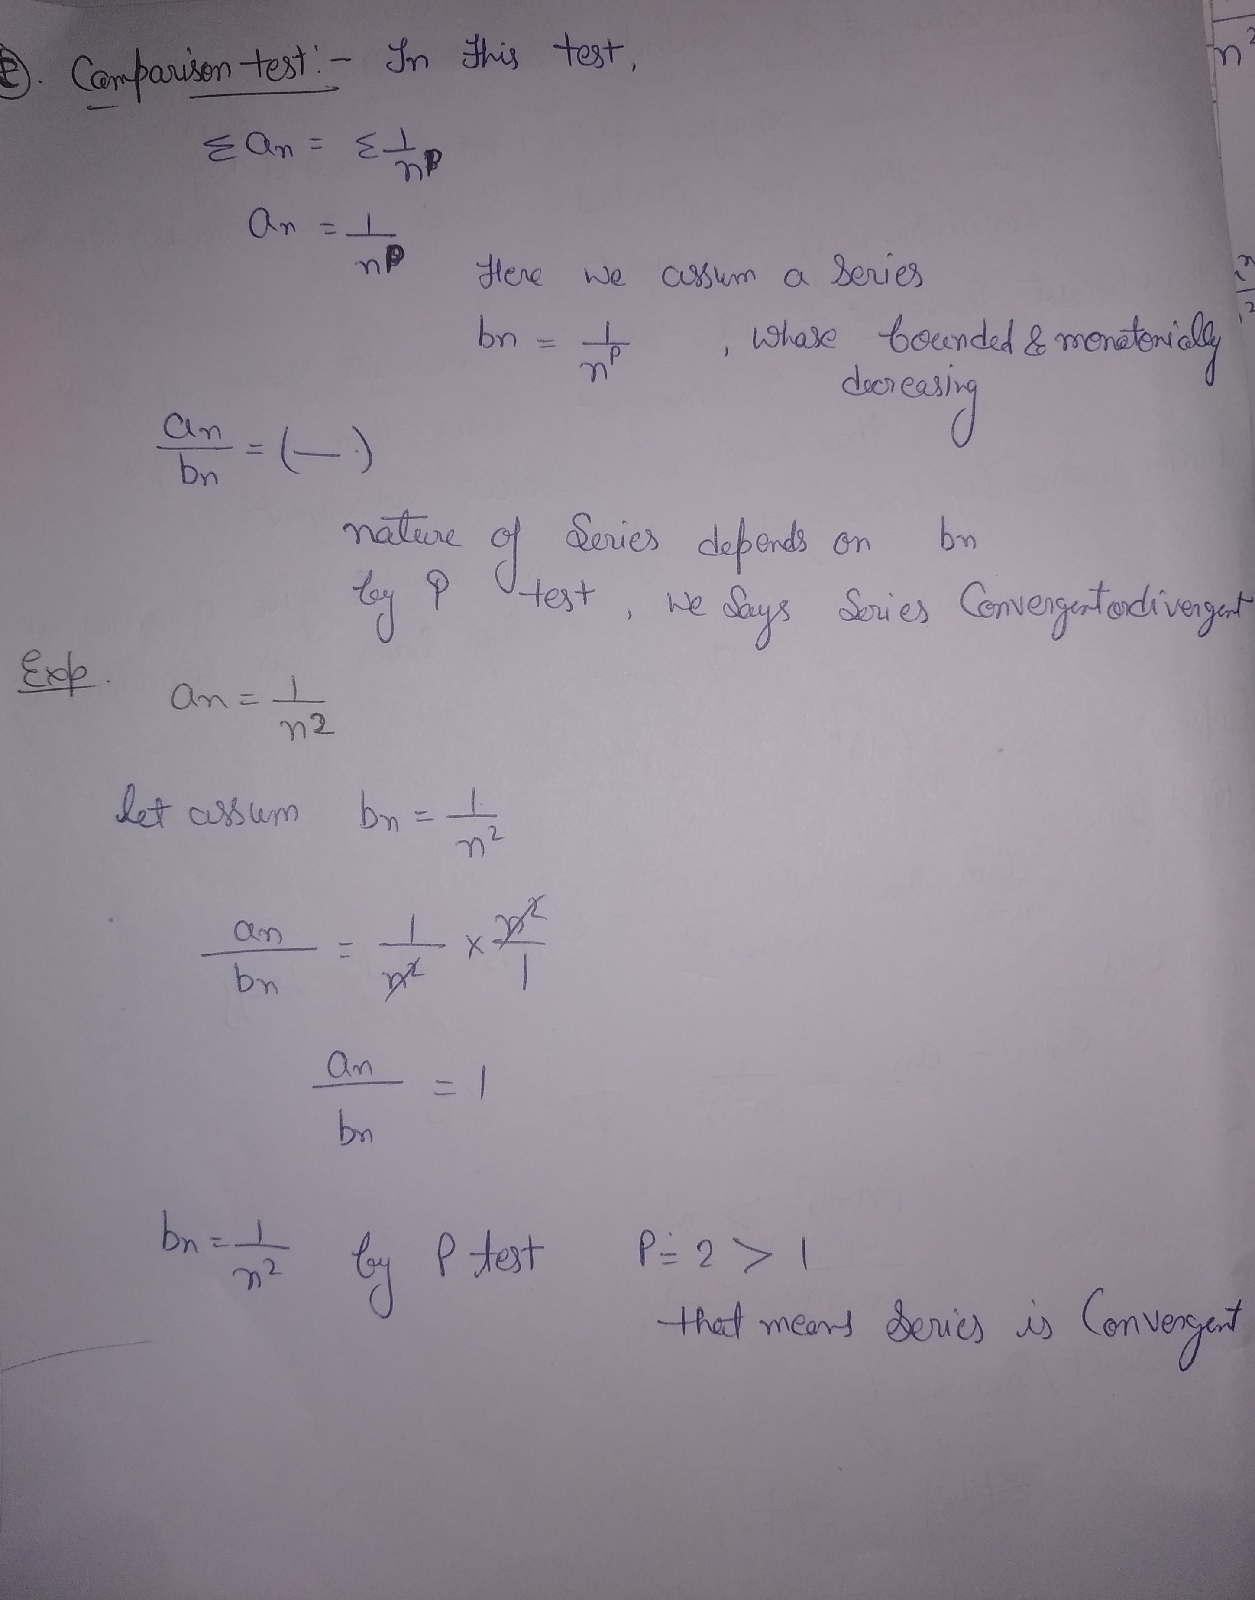 ②. Comparison test :- In this test,
Σ an = Σ 1/n^p
an = 1/n^p
Here we assum a series
bn = 1/n^p , whose bounded & monotonically
decreasing
an/bn = (—.)
nature of Series depends on bn
by P test, we says series Convergent or divergent
Exp. an = 1/n2
let assum bn = 1/n^2
an/bn = 1/n^2 × n^2/1
an/bn = 1
bn = 1/n^2 by P test P = 2 > 1
that means series is Convergent